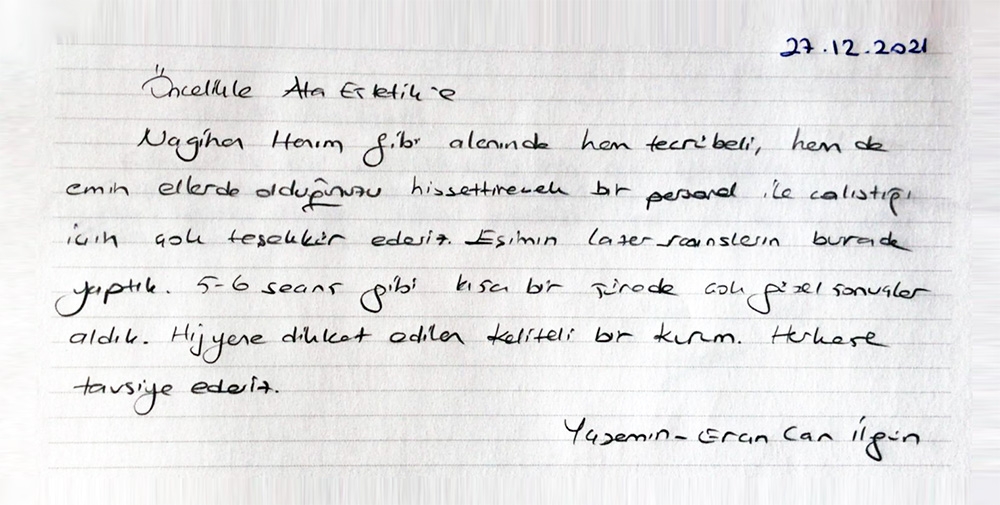 27.12.2021
Öncelikle Ata Estetik'e
Nagihan Hanım gibi alanında hem tecrübeli, hem de
emin ellerde olduğunuzu hissettirecek bir personel ile calıstığı
için çok teşekkür ederiz. Eşimin lazer seanslarını burada
yaptık. 5-6 seans gibi kısa bir sürede çok güzel sonuçlar
aldık. Hijyene dikkat edilen kaliteli bir kurum. Herkese
tavsiye ederiz.
Yasemin - Eran Can İlgün